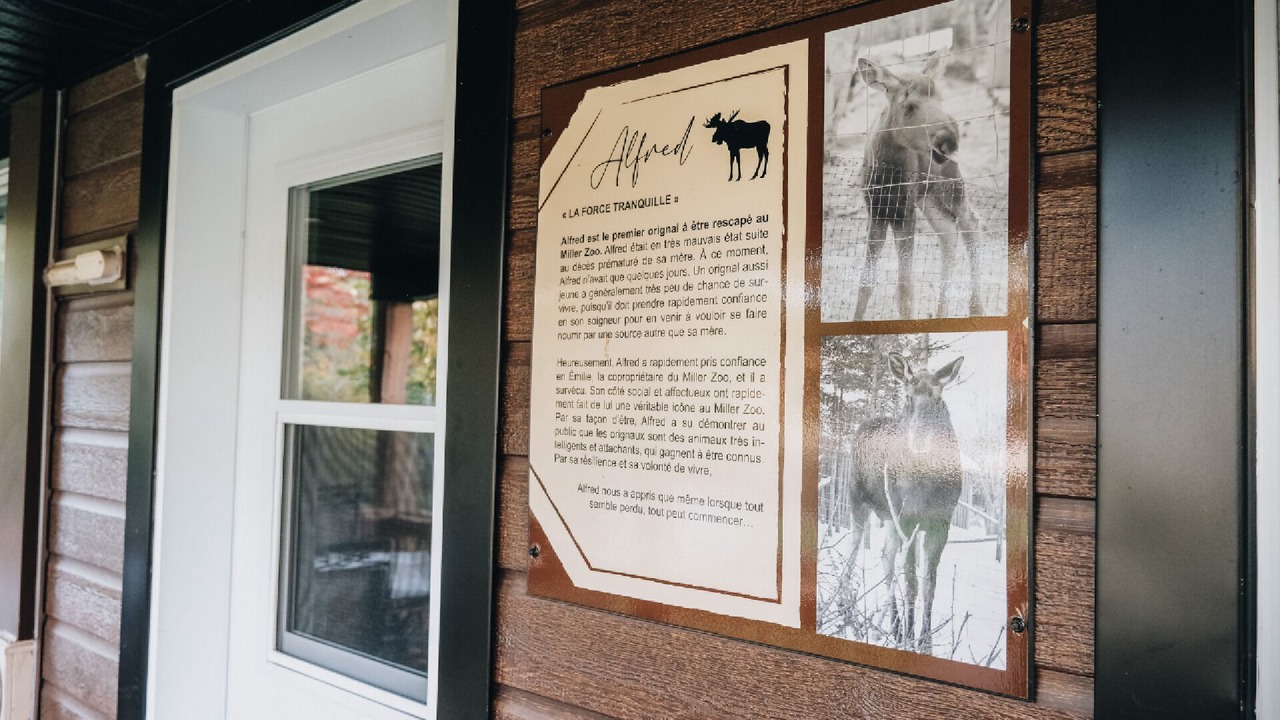 Alfred
« LA FORCE TRANQUILLE »
Alfred est le premier orignal à être rescapé au
Miller Zoo. Alfred était en très mauvais état suite
au décès prématuré de sa mère. À ce moment,
Alfred n'avait que quelques jours. Un orignal aussi
jeune a généralement très peu de chance de sur-
vivre, puisqu'il doit prendre rapidement confiance
en son soigneur pour en venir à vouloir se faire
nourrir par une source autre que sa mère.
Heureusement, Alfred a rapidement pris confiance
en Émilie, la copropriétaire du Miller Zoo, et il a
survécu. Son côté social et affectueux ont rapide-
ment fait de lui une véritable icône au Miller Zoo.
Par sa façon d'être, Alfred a su démontrer au
public que les orignaux sont des animaux très in-
telligents et attachants, qui gagnent à être connus.
Par sa résilience et sa volonté de vivre,
Alfred nous a appris que même lorsque tout
semble perdu, tout peut commencer...